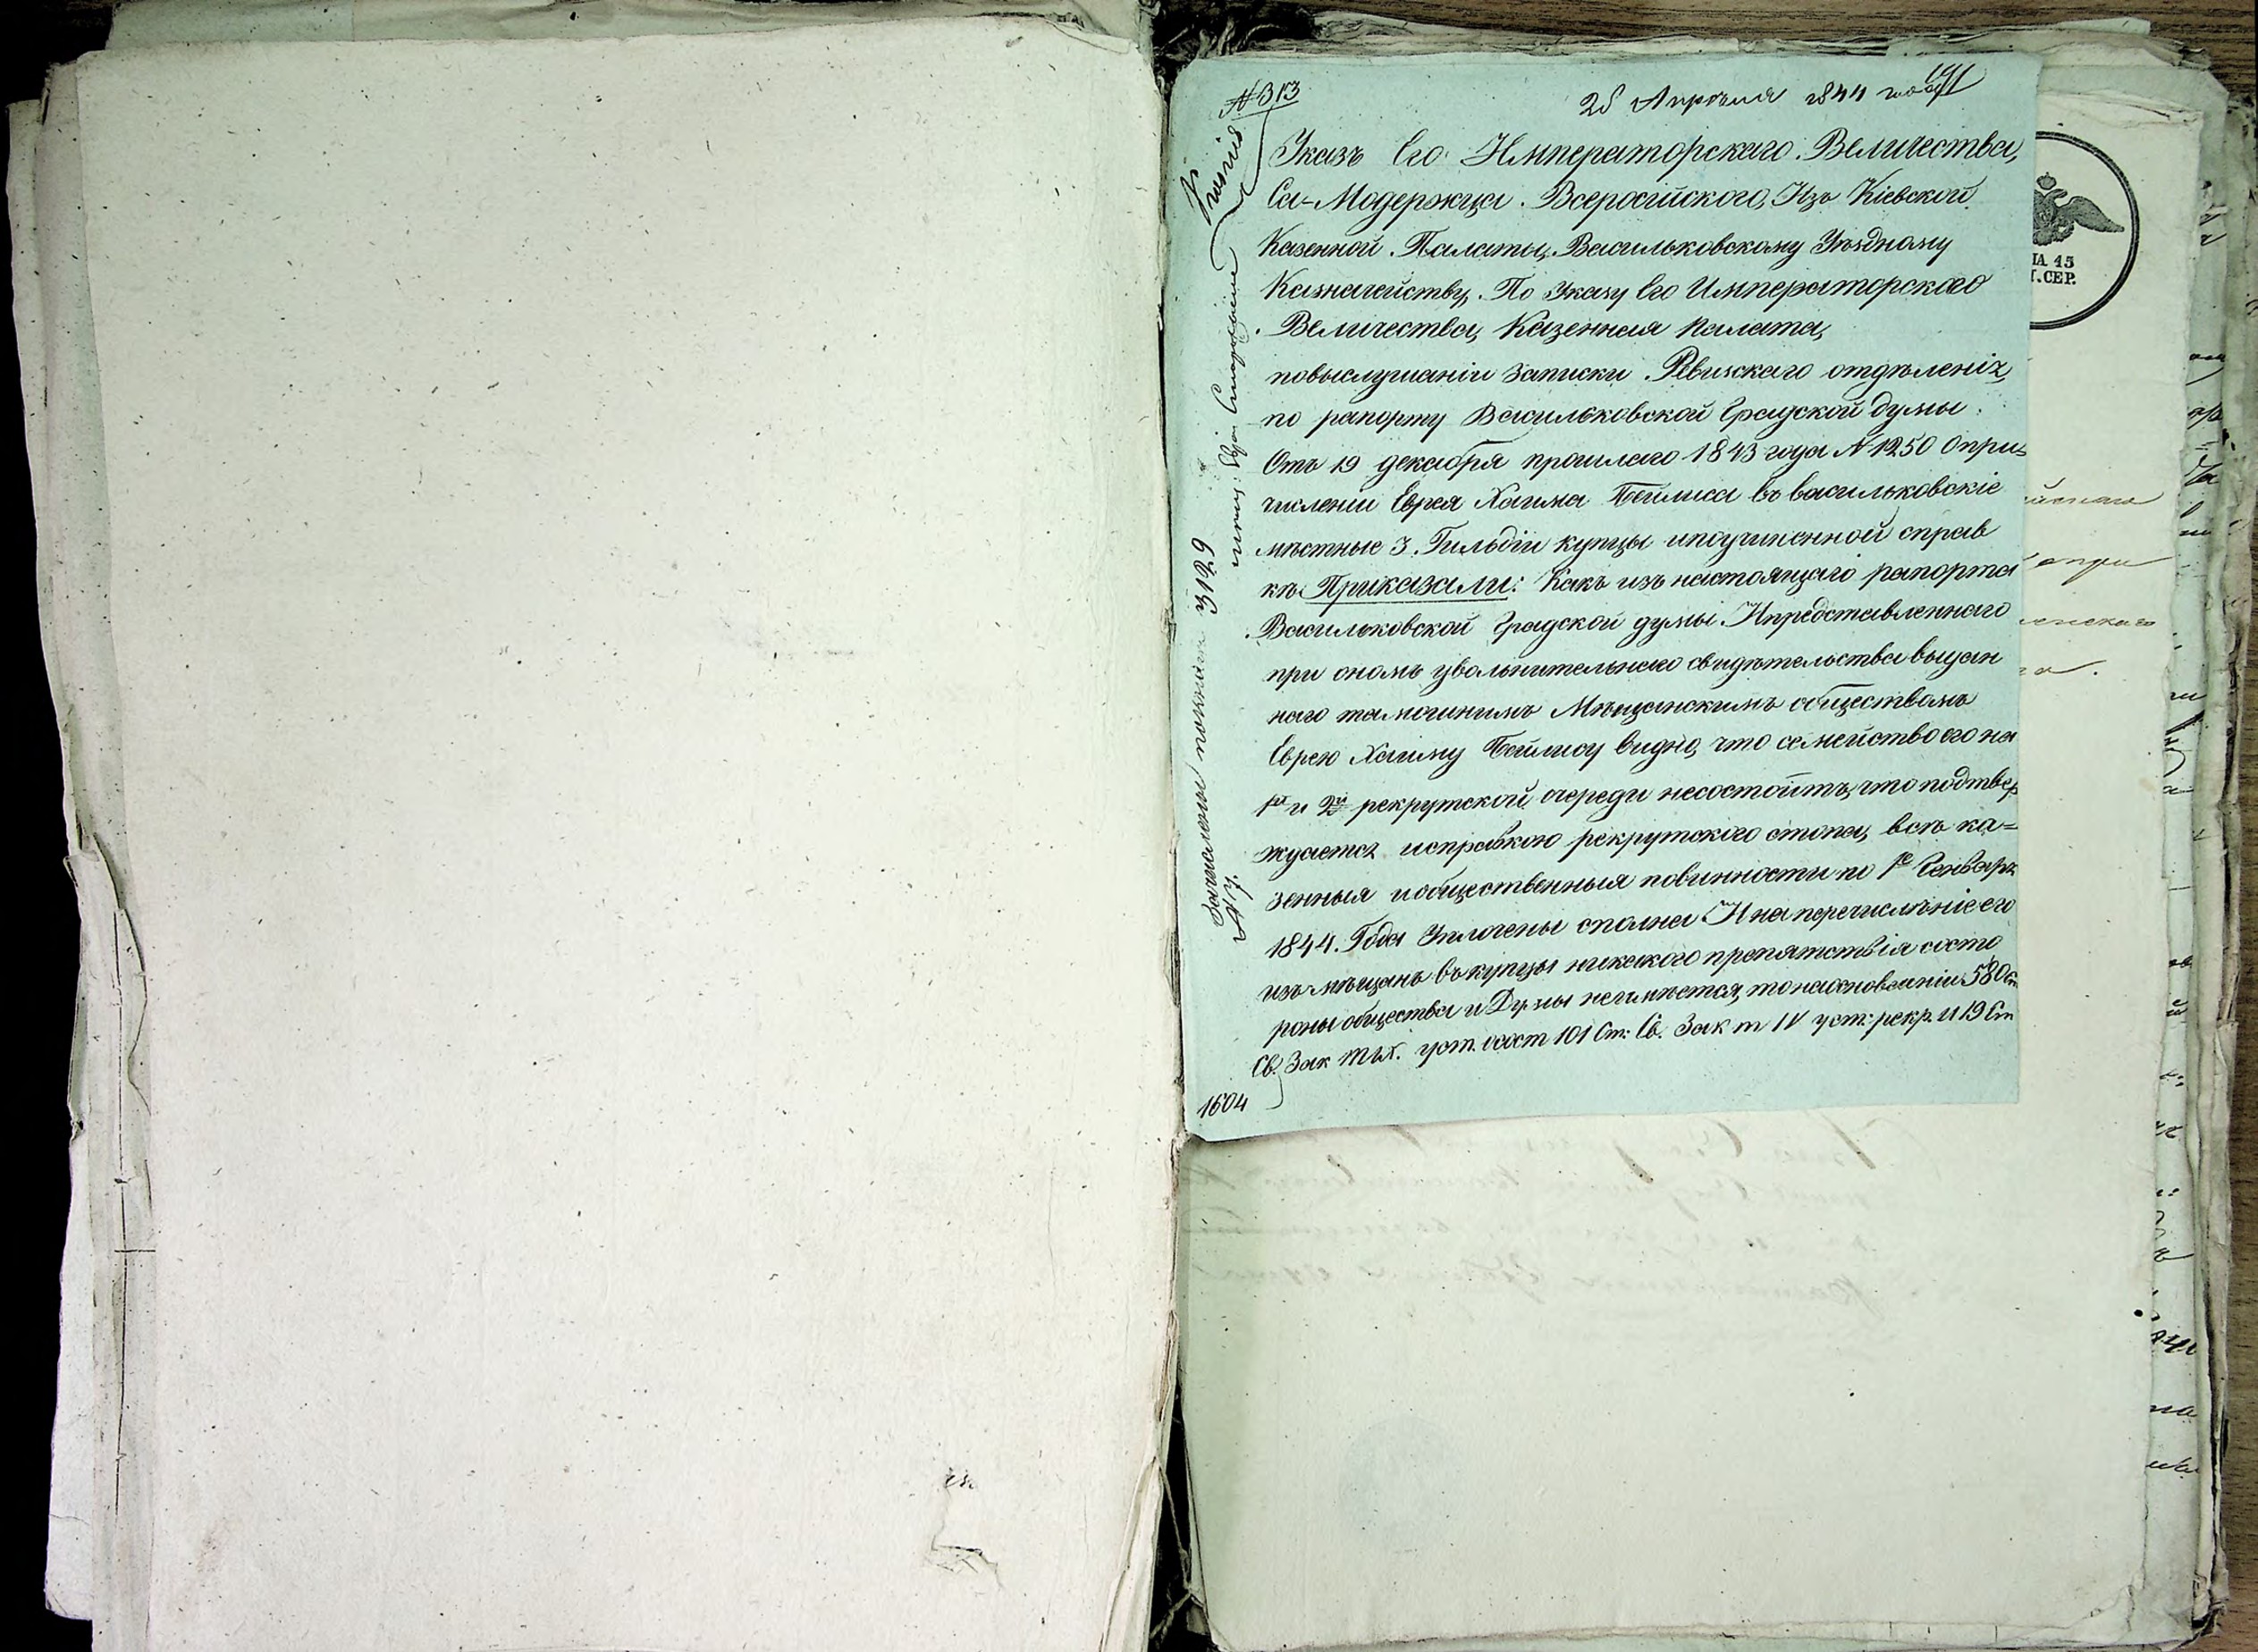 № 313
25 Апрѣля 1844 года
191
Указъ Его Императорскаго Величества,
Са-Модержца Всеросійского, Изъ Кіевской
Казенной Палаты, Васильковскому Уѣздному
Казначейству. По Указу Его Императорского
Величества, Казенная Палата,
повыслушаніи записки Ревизскаго отдѣленія,
по рапорту Васильковской Градской думы
Отъ 19 декабря прошлаго 1843 года № 1250 Опри=
числении Еврея Хаима Бейлиса въ васильковскіе
мѣстные 3. Гильдіи купцы ипоучиненной справ
кѣ Приказали: Какъ изъ настоящаго рапорта
Васильковской Градской думы. Ипредставленнаго
при ономъ увольнительнаго свидѣтельства выдан
наго тамошнимъ Мѣщанскимъ обществомъ
Еврею Хаиму Бейлису видно, что семейство его на
1й и 2й рекрутской очереди несостоитъ, что подтвер
ждается исправкою рекрутского стола, всѣ ка=
зенныя иобщественныя повинности по 1е Генваря
1844. Года Уплочены сполна И на перечислѣніе его
изъ мѣщанъ въ купцы никакого препятствія состо
роны общества и Думы неимѣется, то наосновании 580 ст
Св. Зак т IX. уст. сост 101 Ст: Св. Зак т IV уст: рекр. И 19 Ст
1604
3129
№ 7.
ЦА 15
.СЕР.